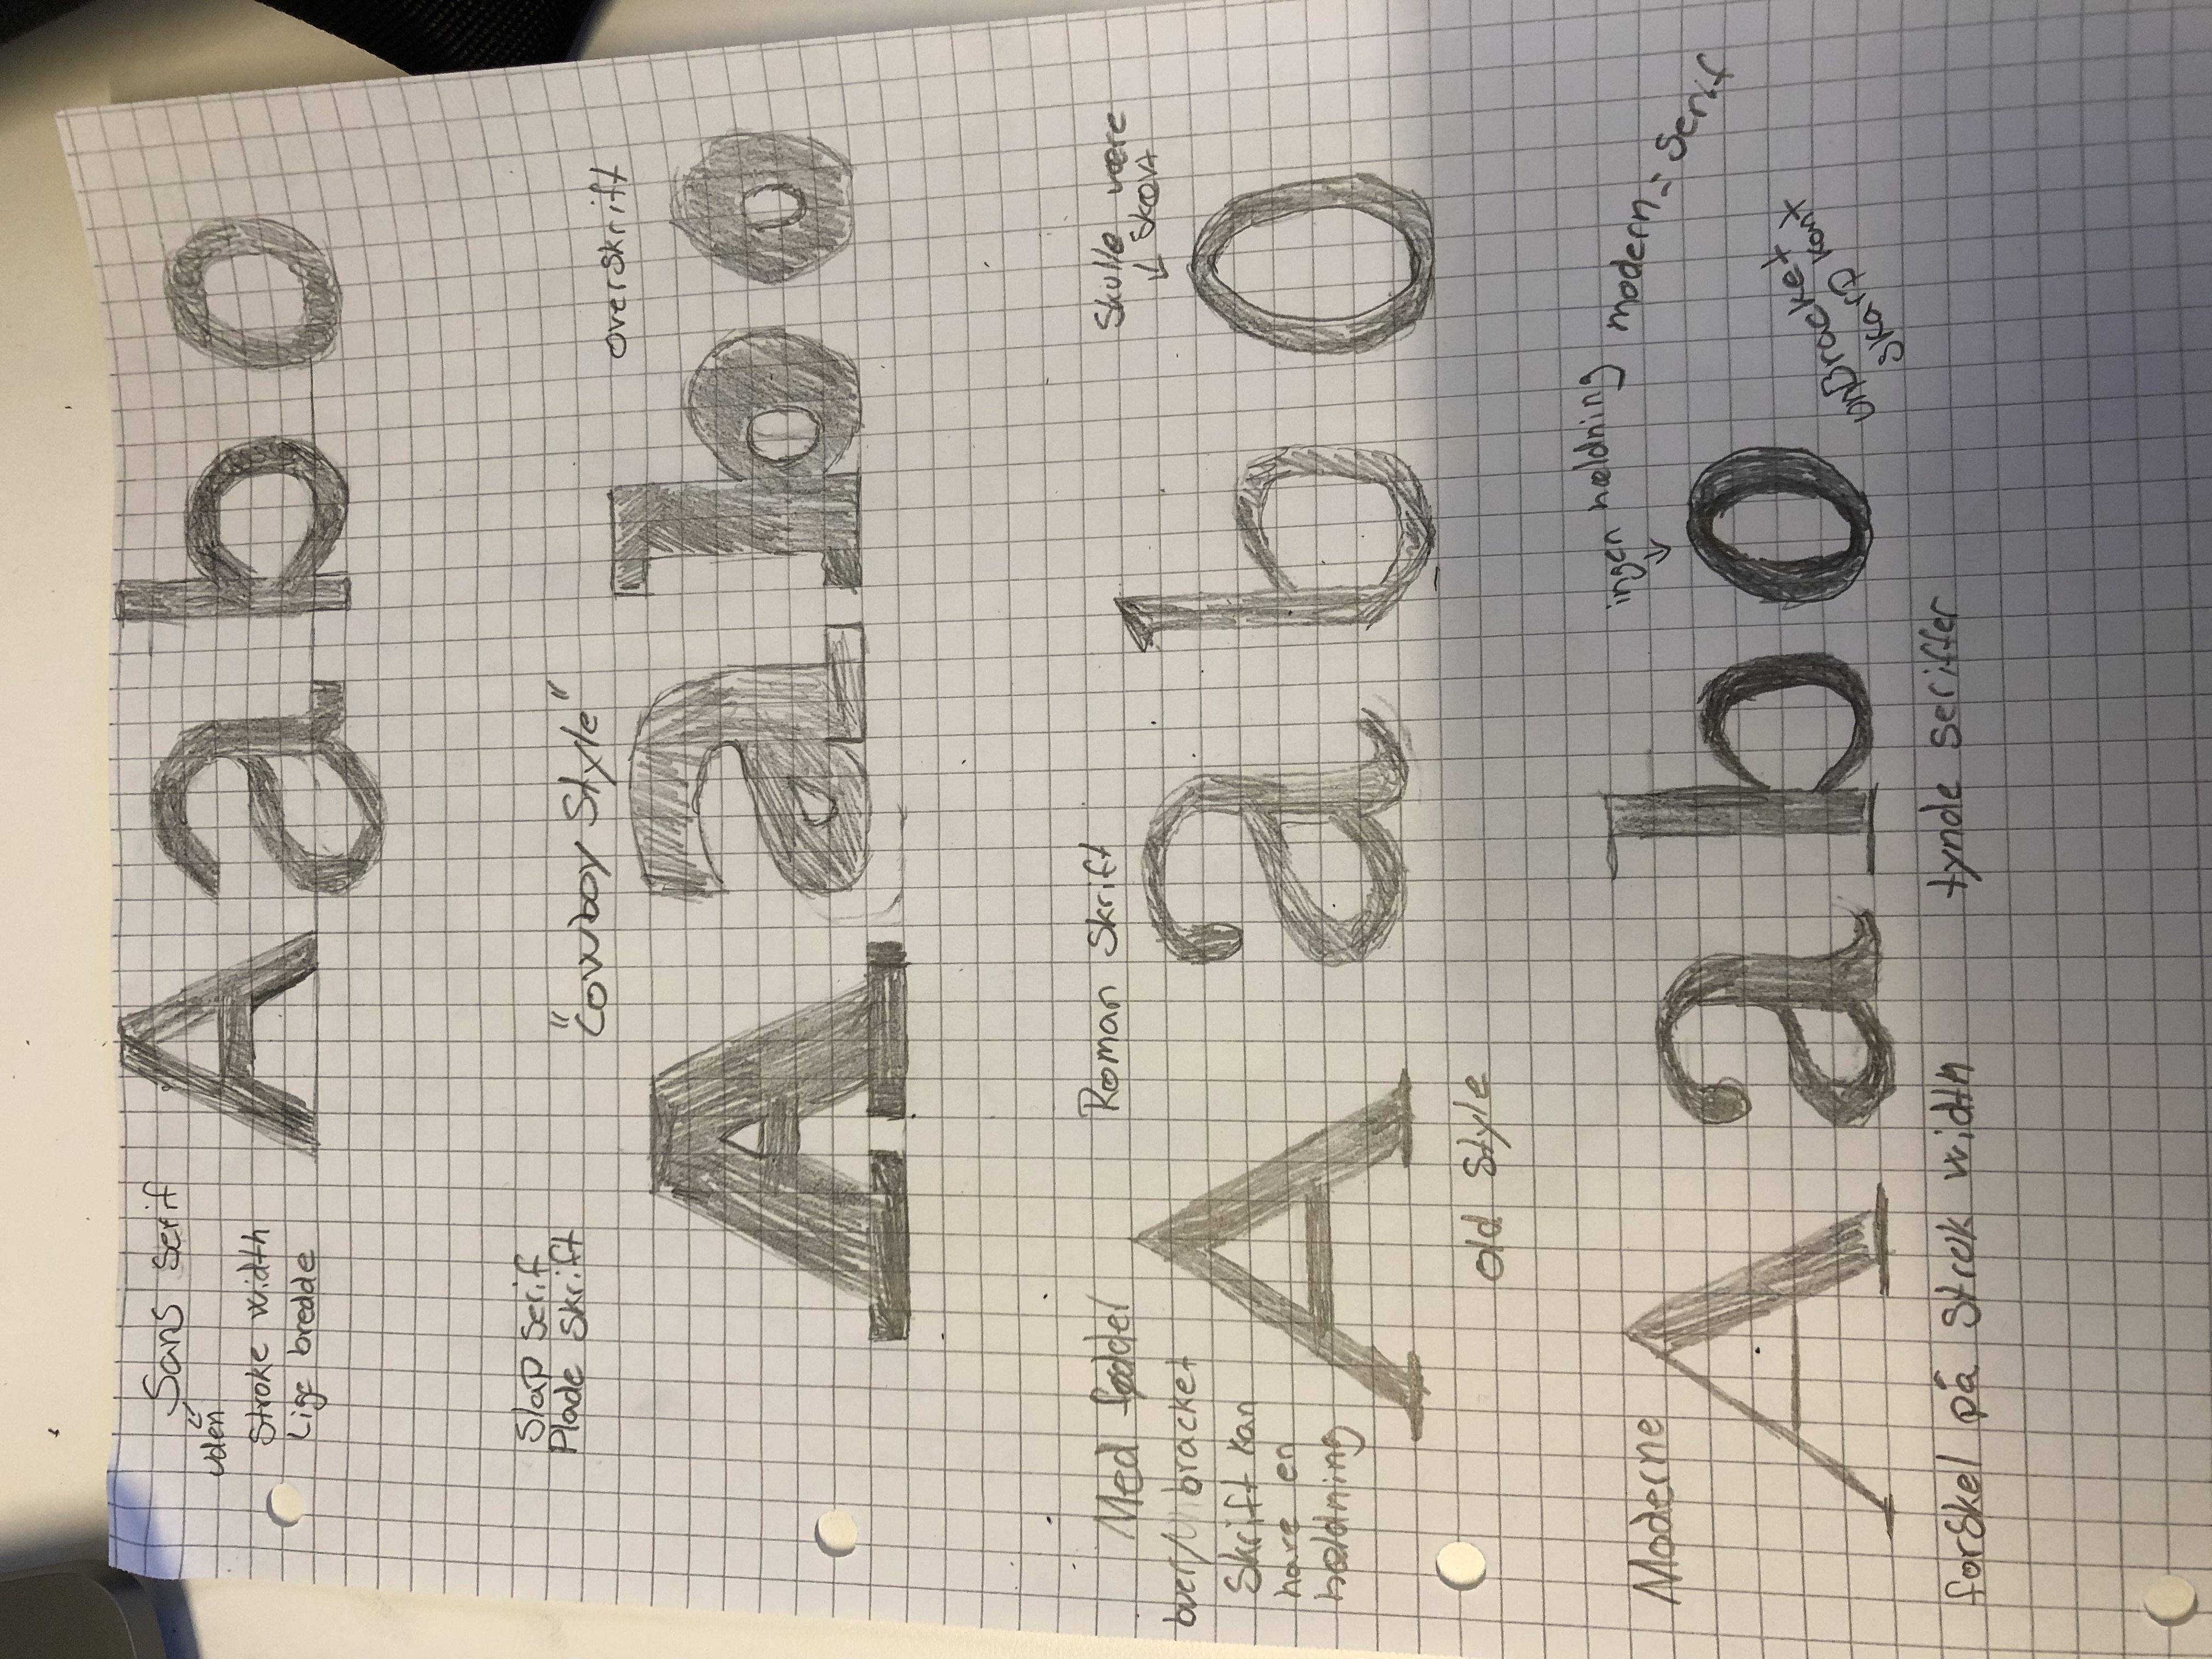 Sans serif
uden
Stroke width
Lige bredde
A a b o
Slap serif
Plade skrift
"Cowboy Style"
overskrift
A a b o
Med fødder
Roman Skrift
Skulle være
skævt
bracket
Skrift kan
have en
hældning
A a b o
old style
Moderne
ingen hældning
modern - serif
A a b o
unBracket
skarp kant
forskel på strok width
tynde seriffer